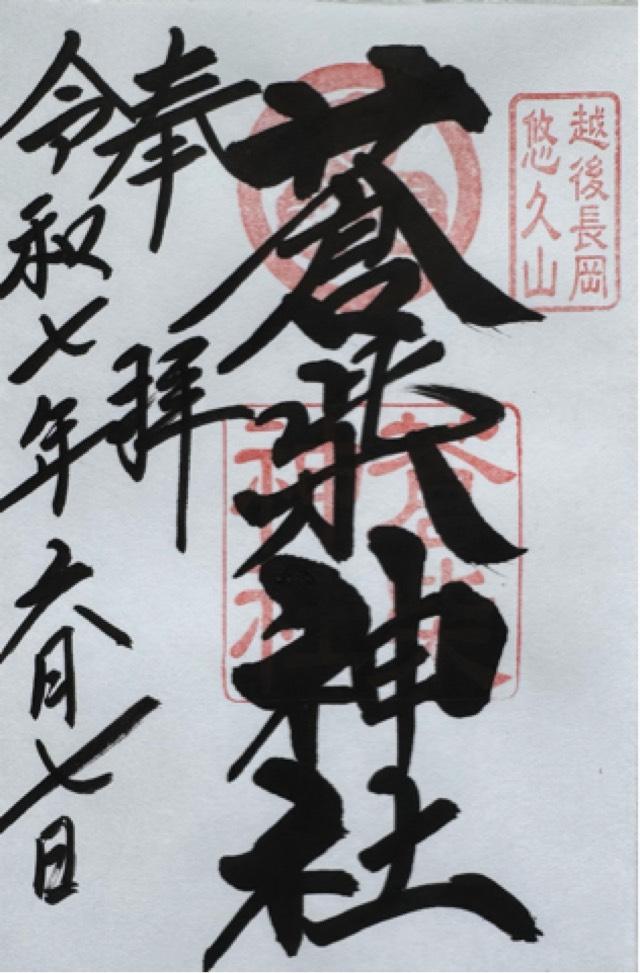 越後長岡
悠久山
蒼柴神社
蒼柴
神社
奉拝
令和七年六月七日